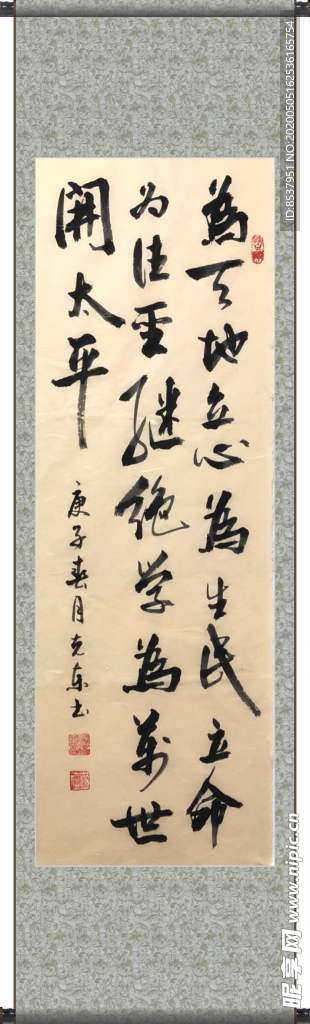 為天地立心為生民立命
为往圣继绝学為萬世
開太平
庚子春月克东书
ID:8537951 NO:20200505162536165754
昵享网 www.nipic.cn